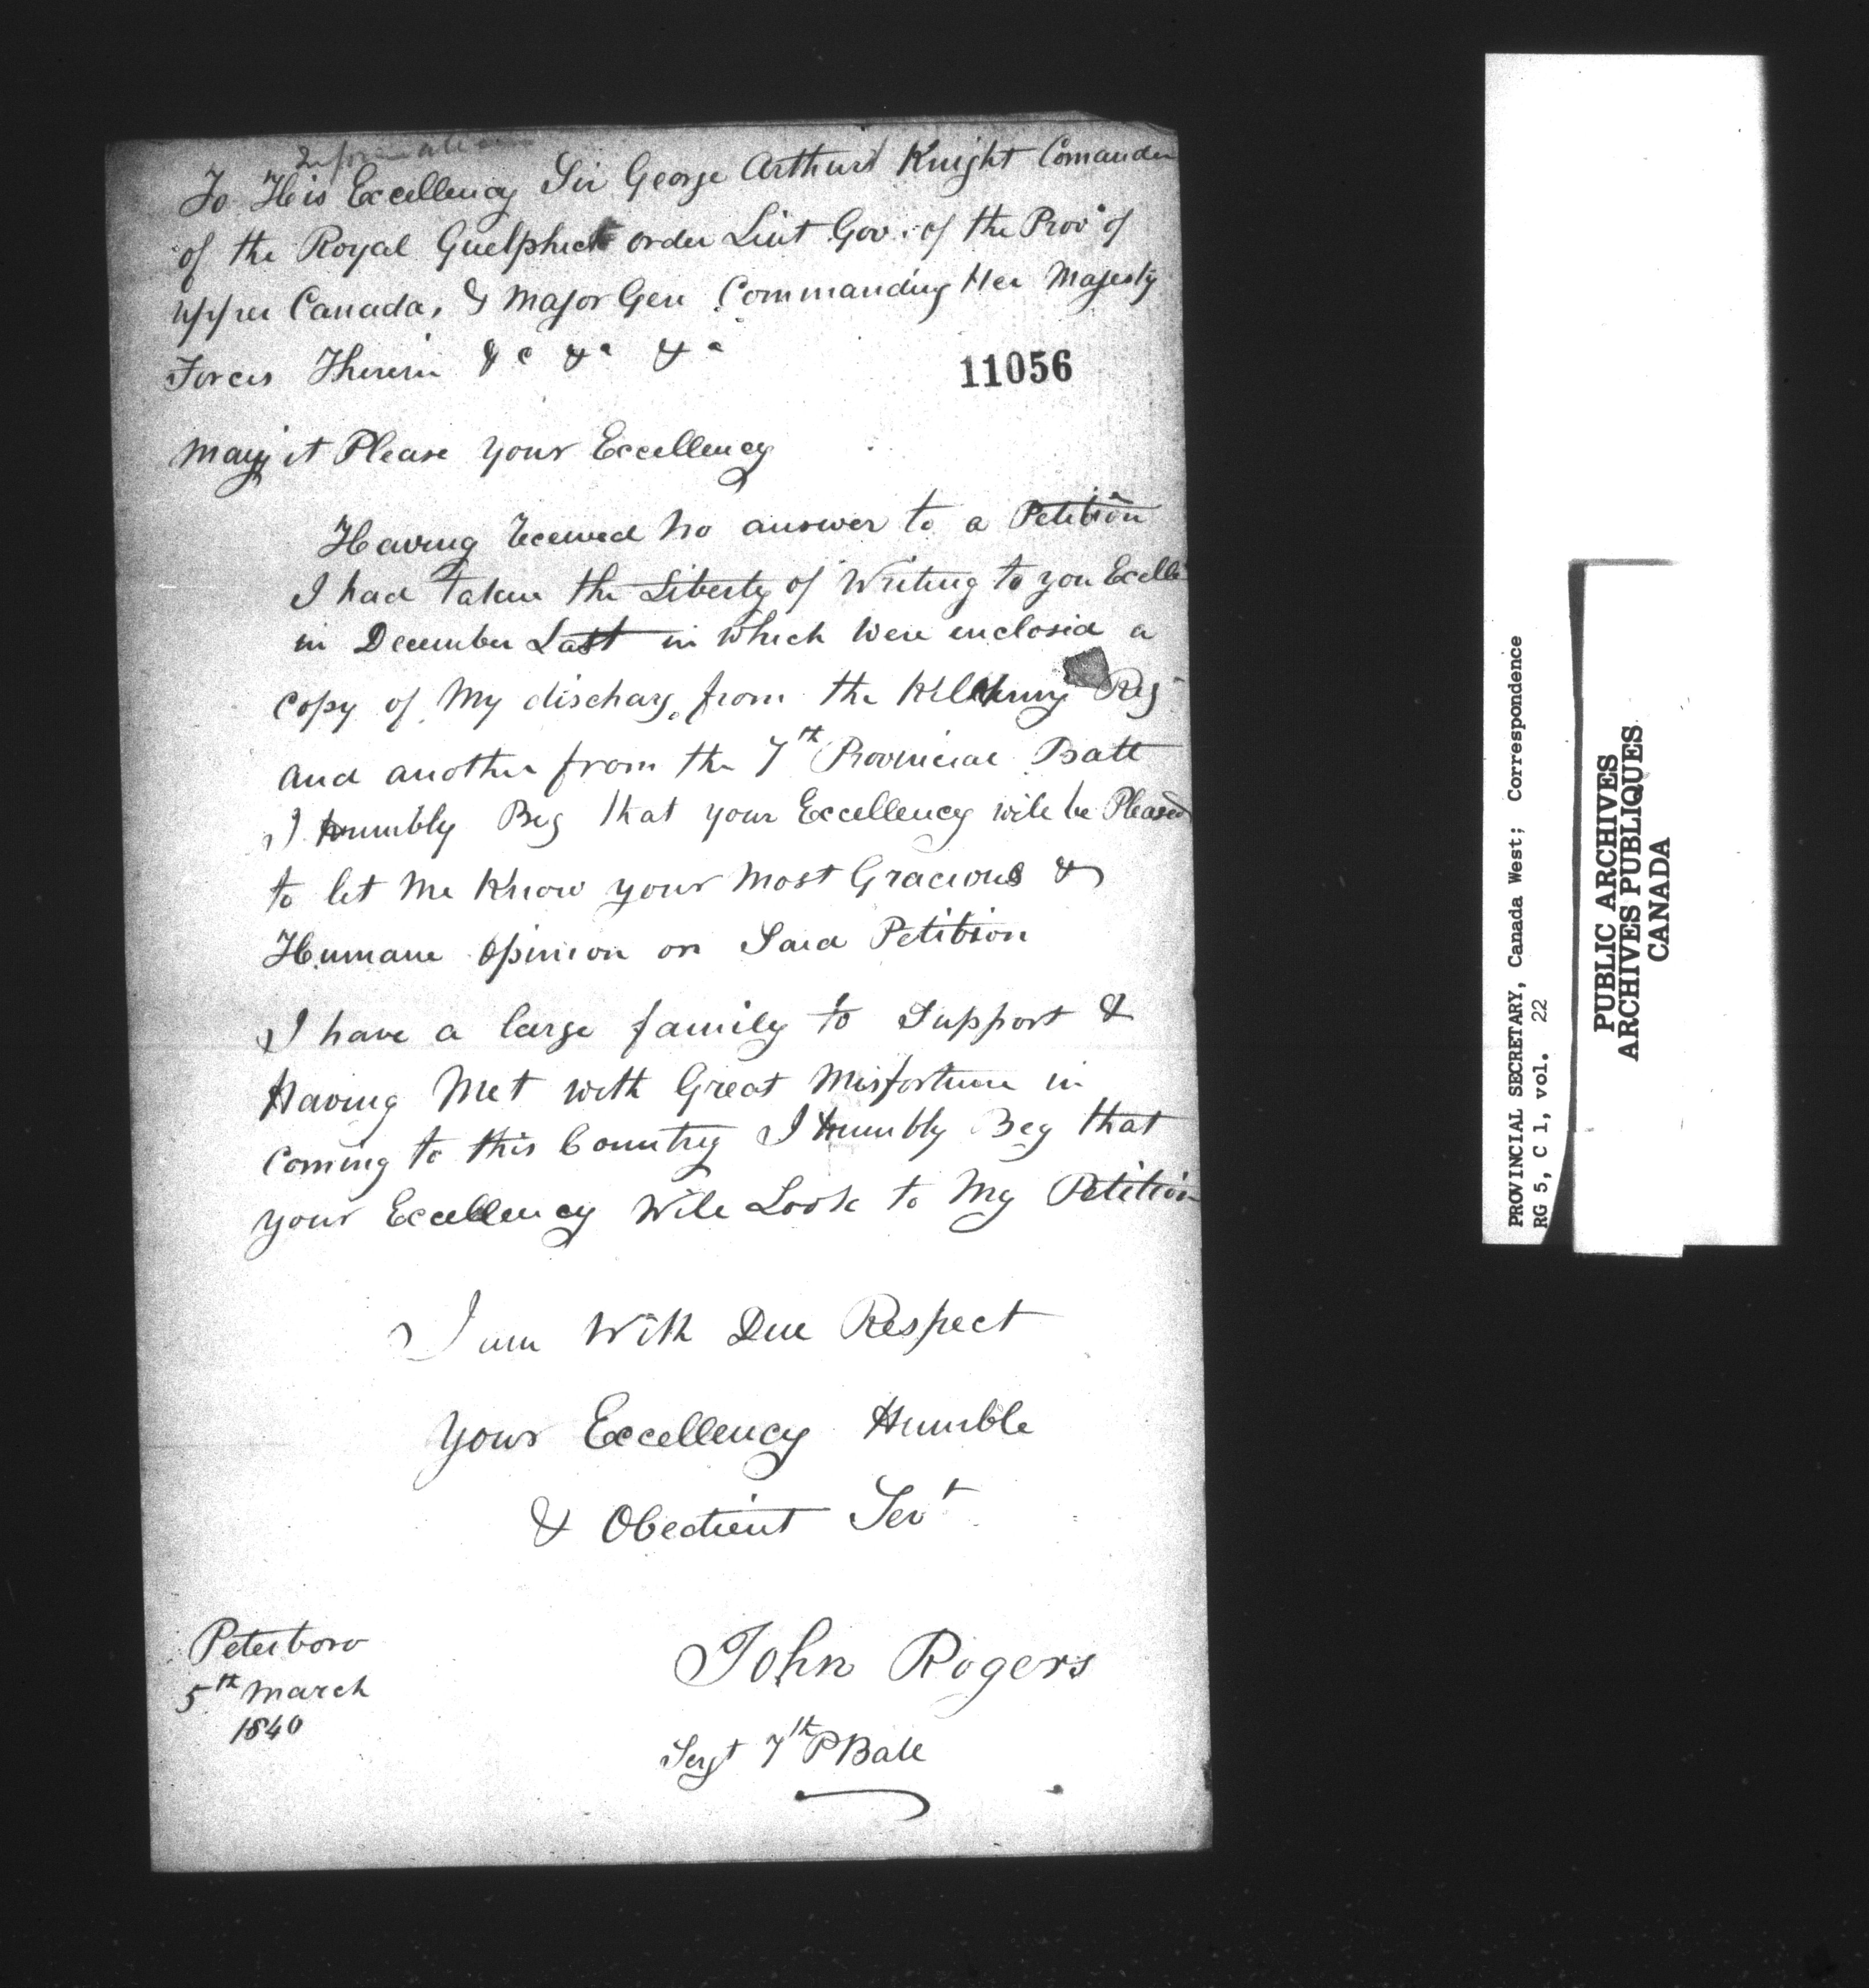 Information
To His Excellency Sir George Arthur Knight Comander
of the Royal Guelphick order Liut Gov. of the Provᵉ of
upper Canada, & Major Gen Commanding Her Majesty
Forces Therein &c &c &c
11056
May it Please your Excellency
Having Received no answer to a Petition
I had taken the Liberty of Writing to you Excelle
in December Last in which were enclosed a
copy of My discharg from the Kilkenny Reg
and another from the 7th Provincial Batt
I Humbly Beg that your Excellency will be Pleased
to let me Know your Most Gracious &
Humane Opinion on Said Petition
I have a large family to Support &
Having Met with Great Misfortune in
Coming to this Country I Humbly Beg that
your Excellency Will Look to My Petition
I am With Due Respect
Your Excellency Humble
& Obedient Servt
Peterboro
5th March
1840
John Rogers
Sergt 7th P Batt
PROVINCIAL SECRETARY, Canada West; Correspondence
RG 5, C 1, vol. 22
PUBLIC ARCHIVES
ARCHIVES PUBLIQUES
CANADA